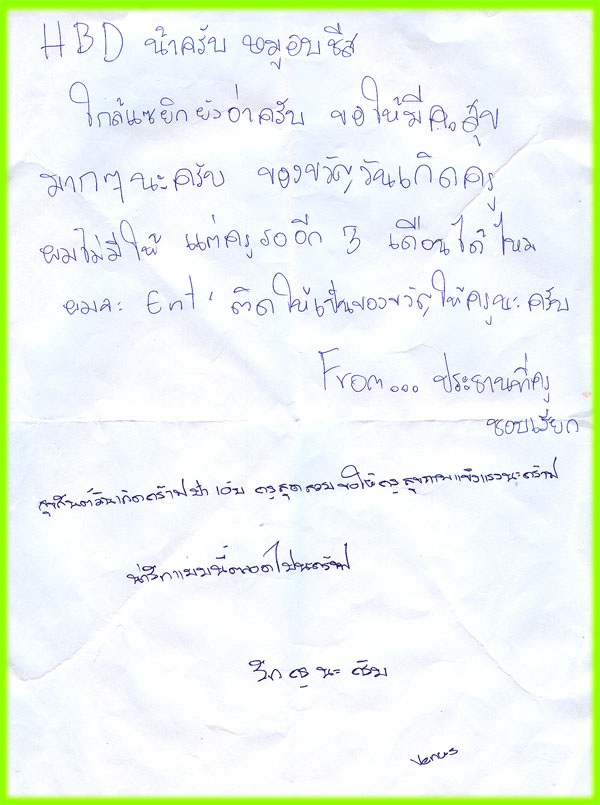 HBD น้าครับ หมูอบชีส
ใกล้แซยิกยังอ่าครับ ขอให้มี ค.สุข
มากๆนะครับ ของขวัญวันเกิดครู
ผมไม่มีให้ แต่ครูรออีก 3 เดือนได้ไหม
ผมจะ Ent' ติดให้เป็นของขวัญให้ครูนะครับ
From... ประธานที่ครู
ชอบเรียก
สุขสันต์วันเกิดคร้าฟ ครูสุดสวย ขอให้ครูสุขภาพแข็งแรงนะคร้าฟ
น่ารักแบบนี้ตลอดไปนะคร้าฟ
รักครูนะครับ
Venus